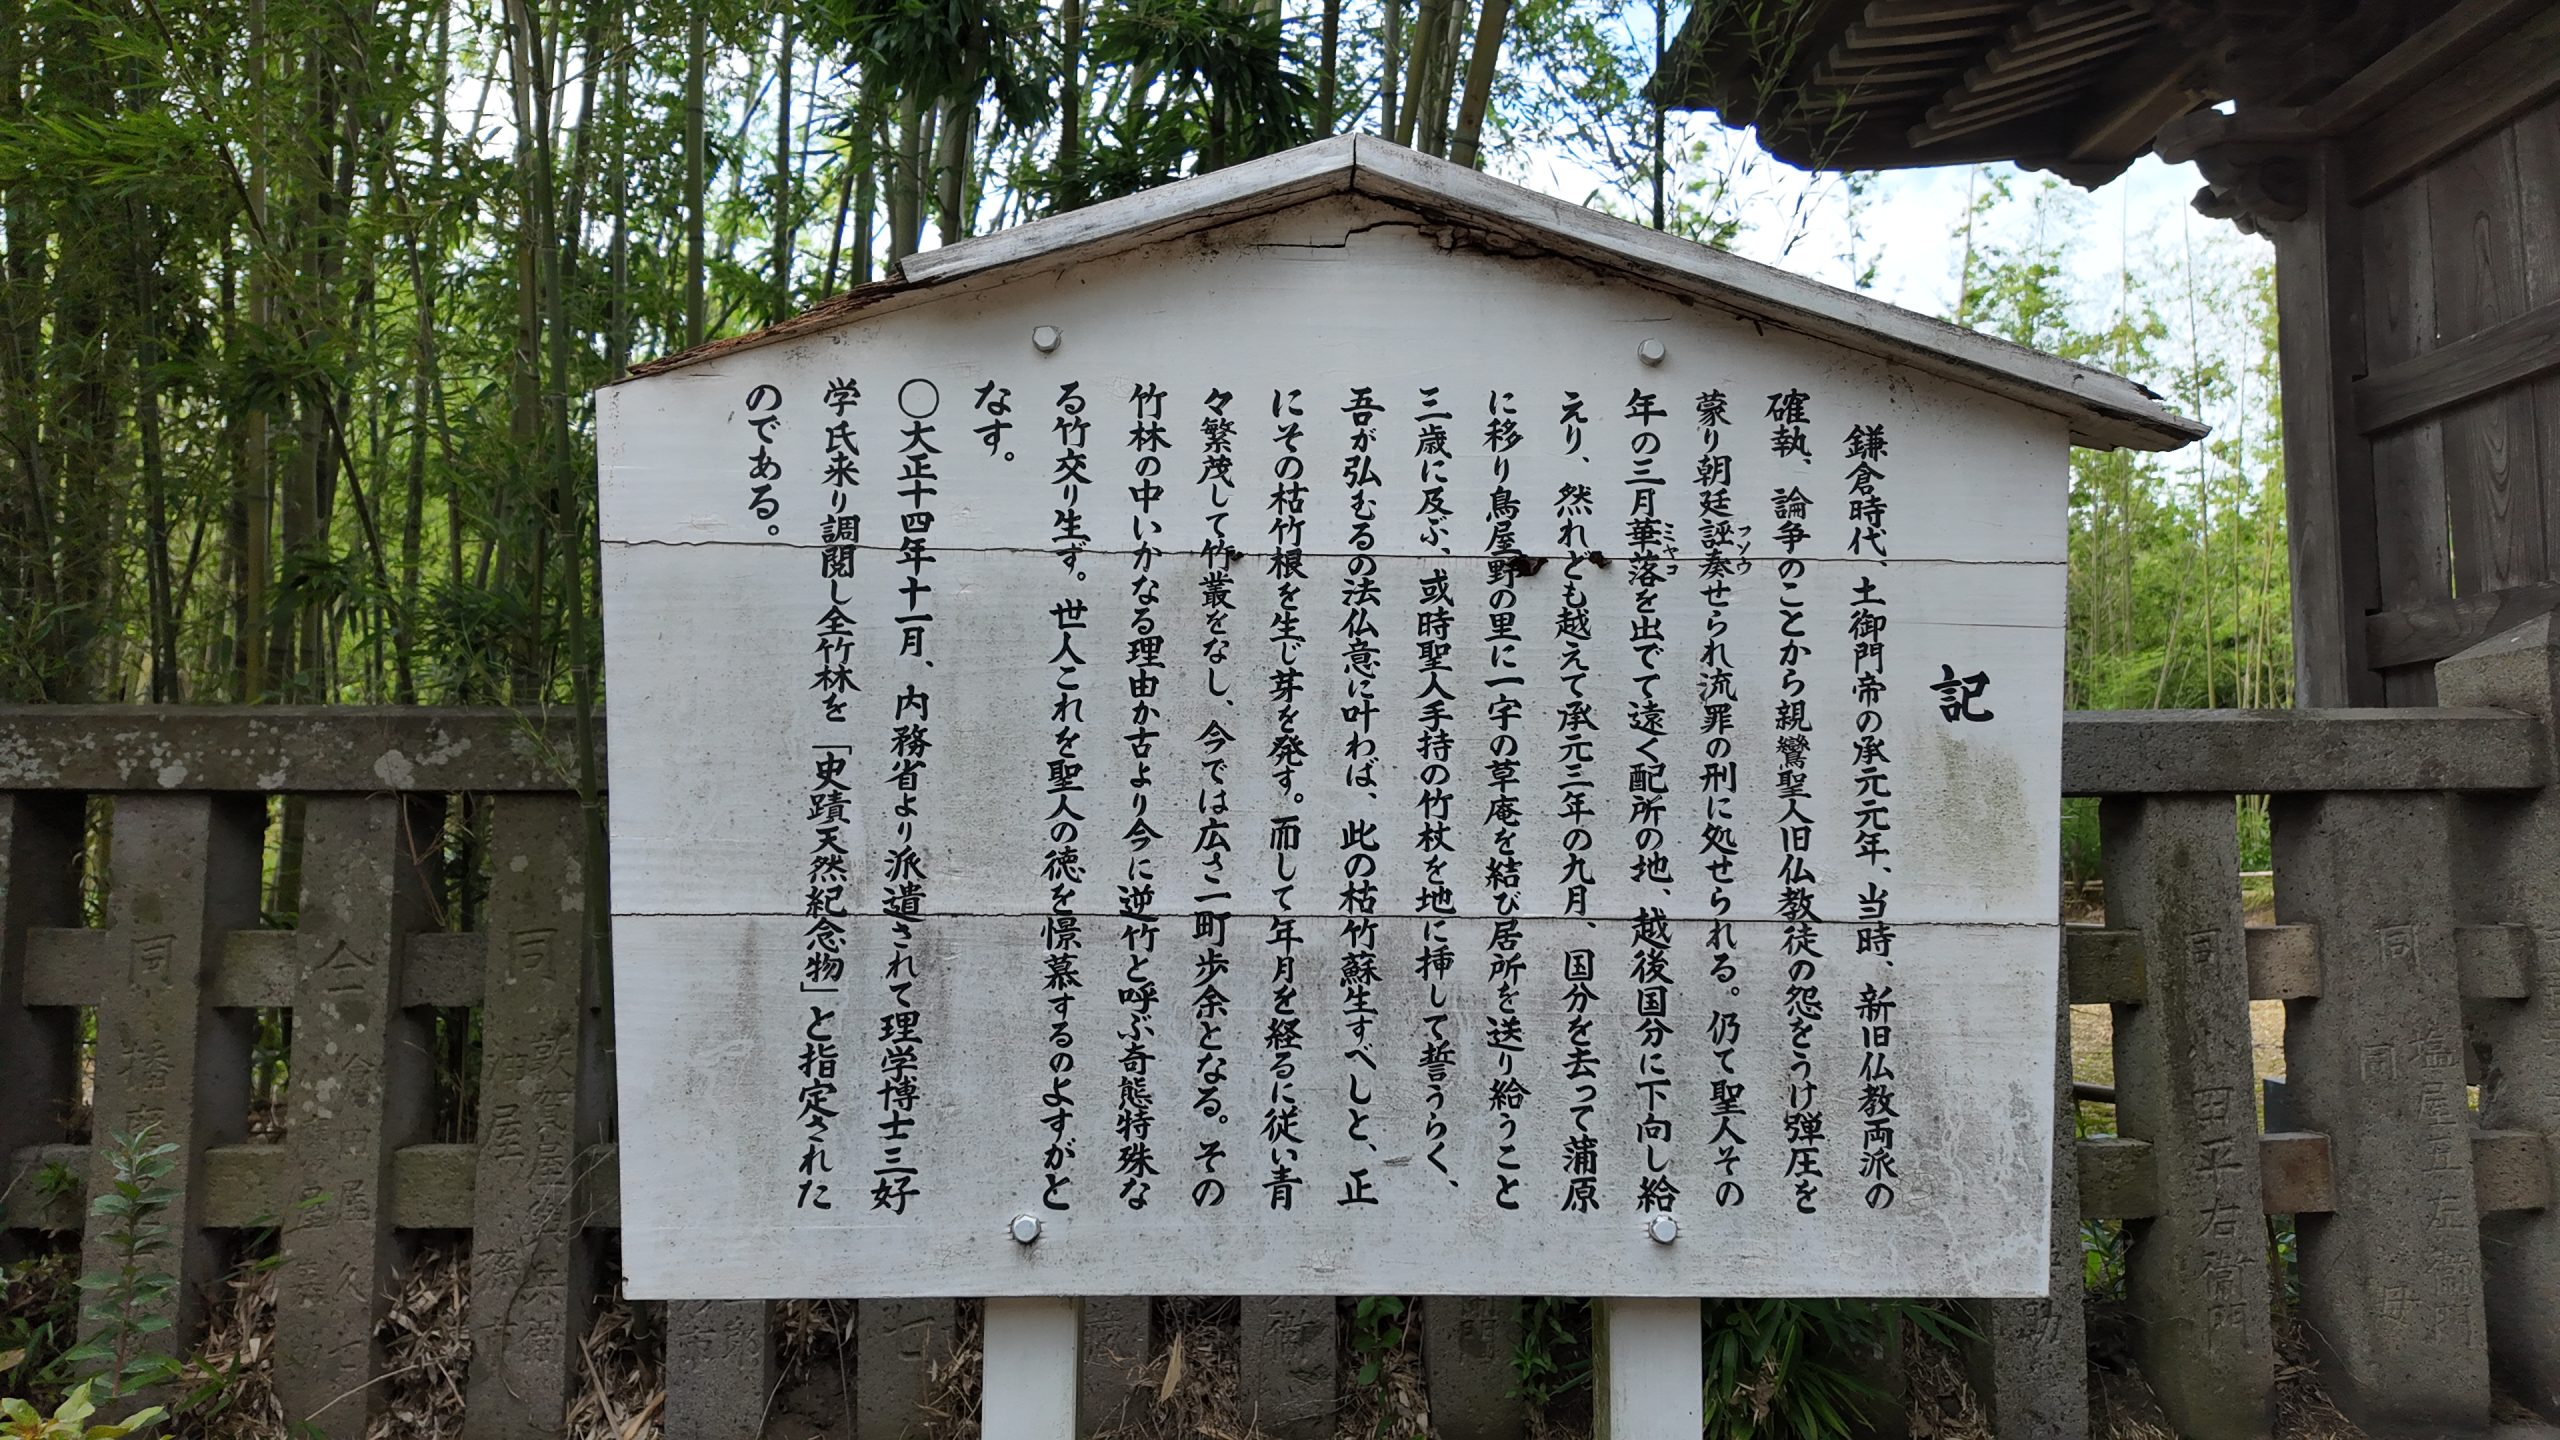 記
鎌倉時代、土御門帝の承元元年、当時、新旧仏教両派の
確執、論争のことから親鸞聖人旧仏教徒の怨をうけ弾圧を
蒙り朝廷誣奏せられ流罪の刑に処せられる。仍て聖人その
フソウ
年の三月華落を出でて遠く配所の地、越後国分に下向し給
ミヤコ
えり、然れども越えて承元三年の九月、国分を去って蒲原
に移り鳥屋野の里に一宇の草庵を結び居所を送り給うこと
三歳に及ぶ、或時聖人手持の竹杖を地に挿して誓うらく、
吾が弘むるの法仏意に叶わば、此の枯竹蘇生すべしと、正
にその枯竹根を生じ芽を発す。而して年月を経るに従い青
々繁茂して竹叢をなし、今では広さ二町歩余となる。その
竹林の中いかなる理由か古より今に逆竹と呼ぶ奇態特殊な
る竹交り生ず。世人これを聖人の徳を憬慕するのよすがと
なす。
〇大正十四年十一月、内務省より派遣されて理学博士三好
学氏来り調閲し全竹林を「史蹟天然紀念物」と指定された
のである。
同
敦賀屋
油屋
同 小田平右衛門
同 塩屋
同 同 母